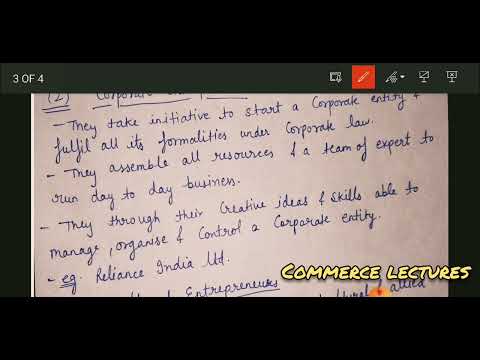 3 OF 4
(2) Corporate
- They take initiative to start a Corporate entity &
fulfil all its formalities under Corporate law.
- They assemble all resources & a team of expert to
run day to day business.
- They through their Creative ideas & skills able to
manage, organise & Control a Corporate entity.
- eg. Reliance India Ltd.
Entrepreneurs
allied
COMMERCE LECTURES